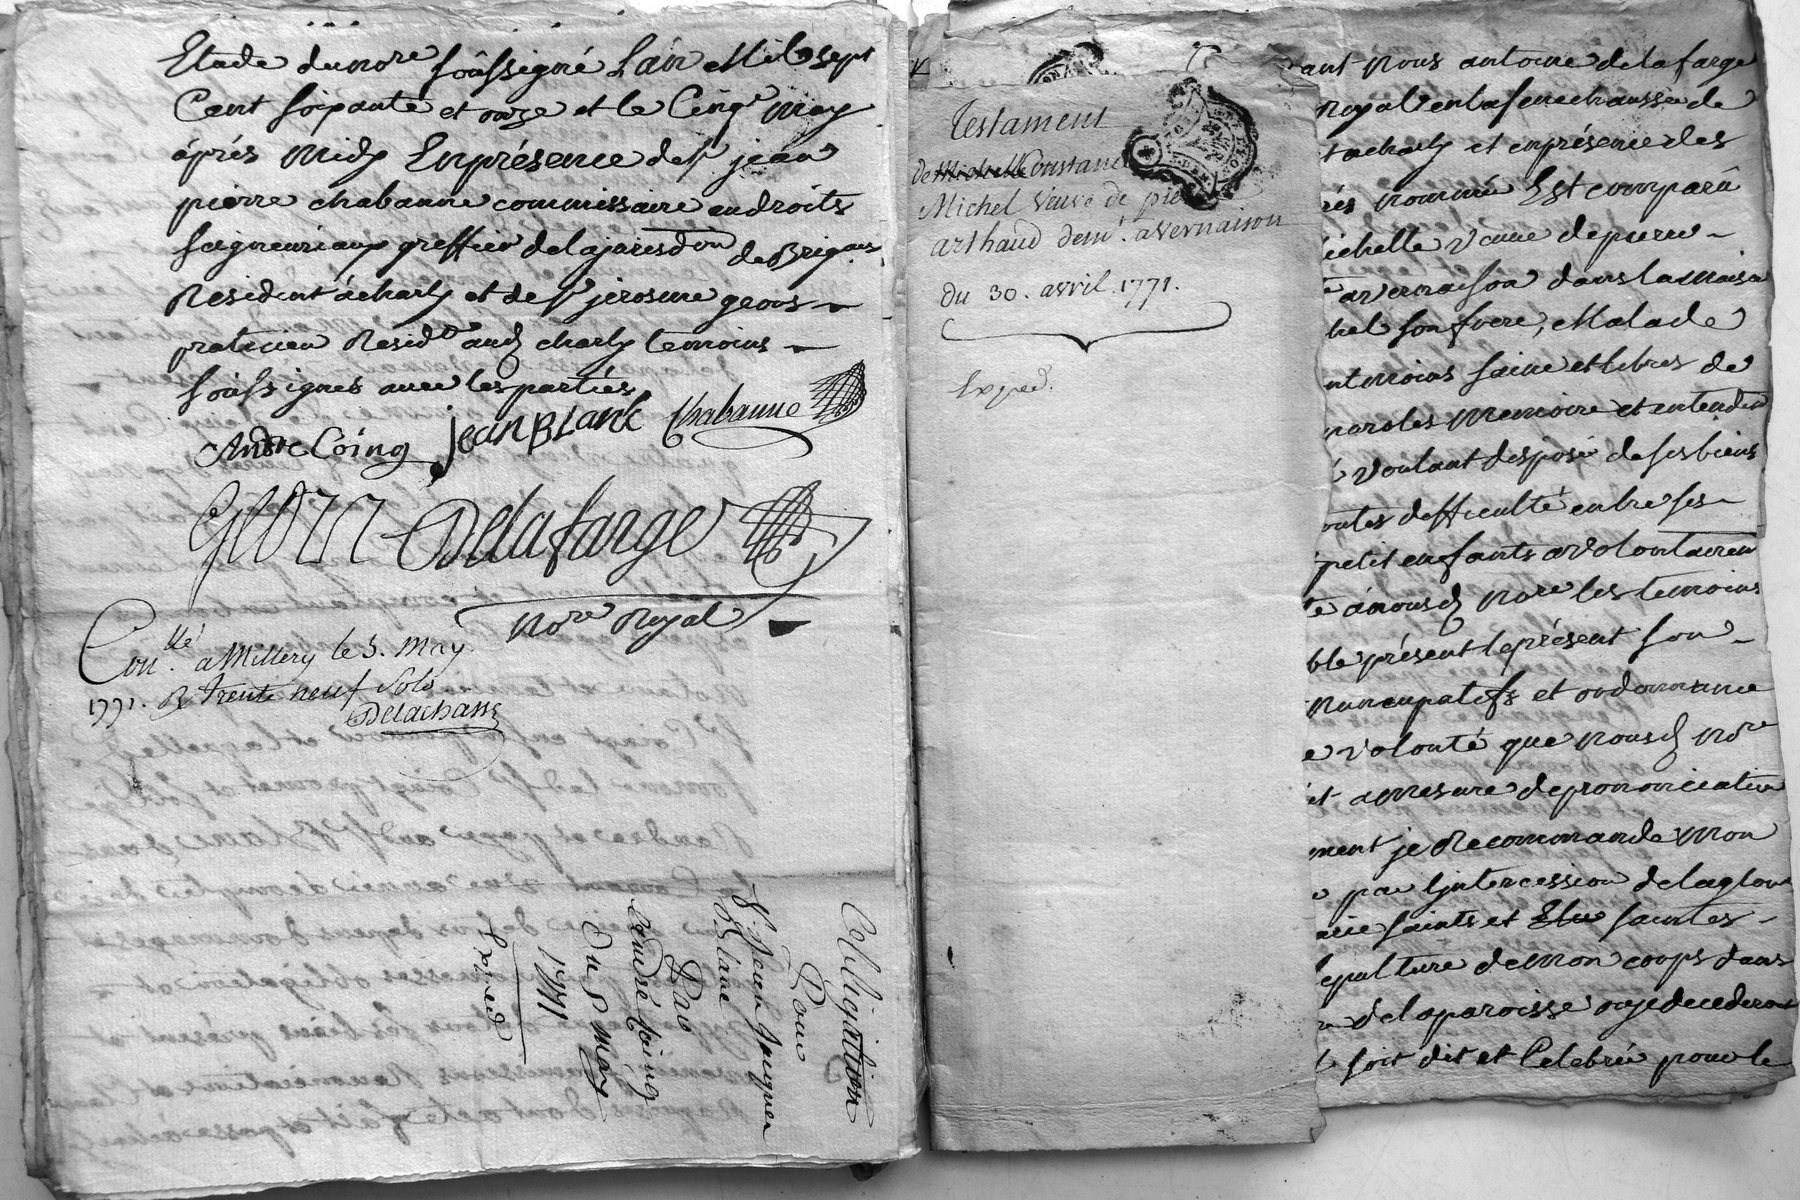 Etude du nore soussigné L'an Mil sept
Cent soixante et onze et le Cinqe may
après Midy En présence de sr jean
pierre chabanne commissaire en droits
seigneuriaux greffier de la jurisdion de Brignais
Résident à charly et de sr jerosme geours
praticien Residt aud charly temoins
soussignés avec les parties
André Coing jean BLanc Chabanne
Delafarge
Nore Royal
Conllé a Millery le 5. May
1771. R trente neuf sols
Delachass
Obligation
Pour
sr Jean Jacques
Blanc
Par
andré Coing
Du 5 May
1771
Exped
Testament
de Michelle Coustan
Michel veuve de pie
arthaud demt. a vernaison
du 30. avril. 1771.
Exped.
ant Nous antoine delafarge
Royal en la senechaussée de
t a charly et en présence des
rés nommés Est comparû
ichelle veuve de pierre
a vernaison dans la maison
hel son frere, Malade
ntmoins saine et libres de
paroles memoire et entendem
é voulant disposé de ses biens
outes difficulté entre ses
petit enfants a volontairem
té a nousd Nore les temoins
ble présent le présent son
nuncupatifs et ordonnance
e volonté que nousd Nore
it a mesure de prononciation
ment je Recommande mon
e par l'intercession de la glori
arie saints et Elus saintes
epulture de mon corps dans
de la paroisse ou je decederai
t soit dit et Celebrée pour le